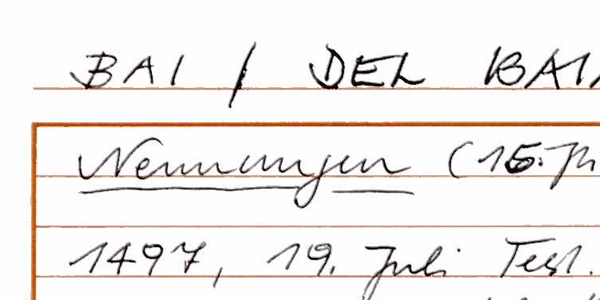 BAI / DEL BAI
Nennungen (15. Jh
1497, 19. Juli Test.